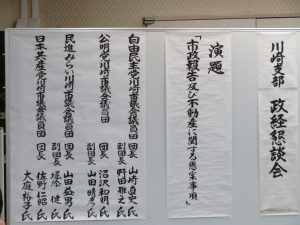 川崎支部 政経懇談会
演題
「市政報告及び不動産に関する懸案事項」
自由民主党川崎市議会議員団 団長 山崎直史氏
副団長 野田雅之氏
公明党川崎市議会議員団 団長 沼沢和明氏
副団長 山田晴彦氏
民進みらい川崎市議会議員団 団長 山田益男氏
副団長 堀添健氏
日本共産党川崎市議会議員団 団長 佐野仁昭氏
大庭裕子氏